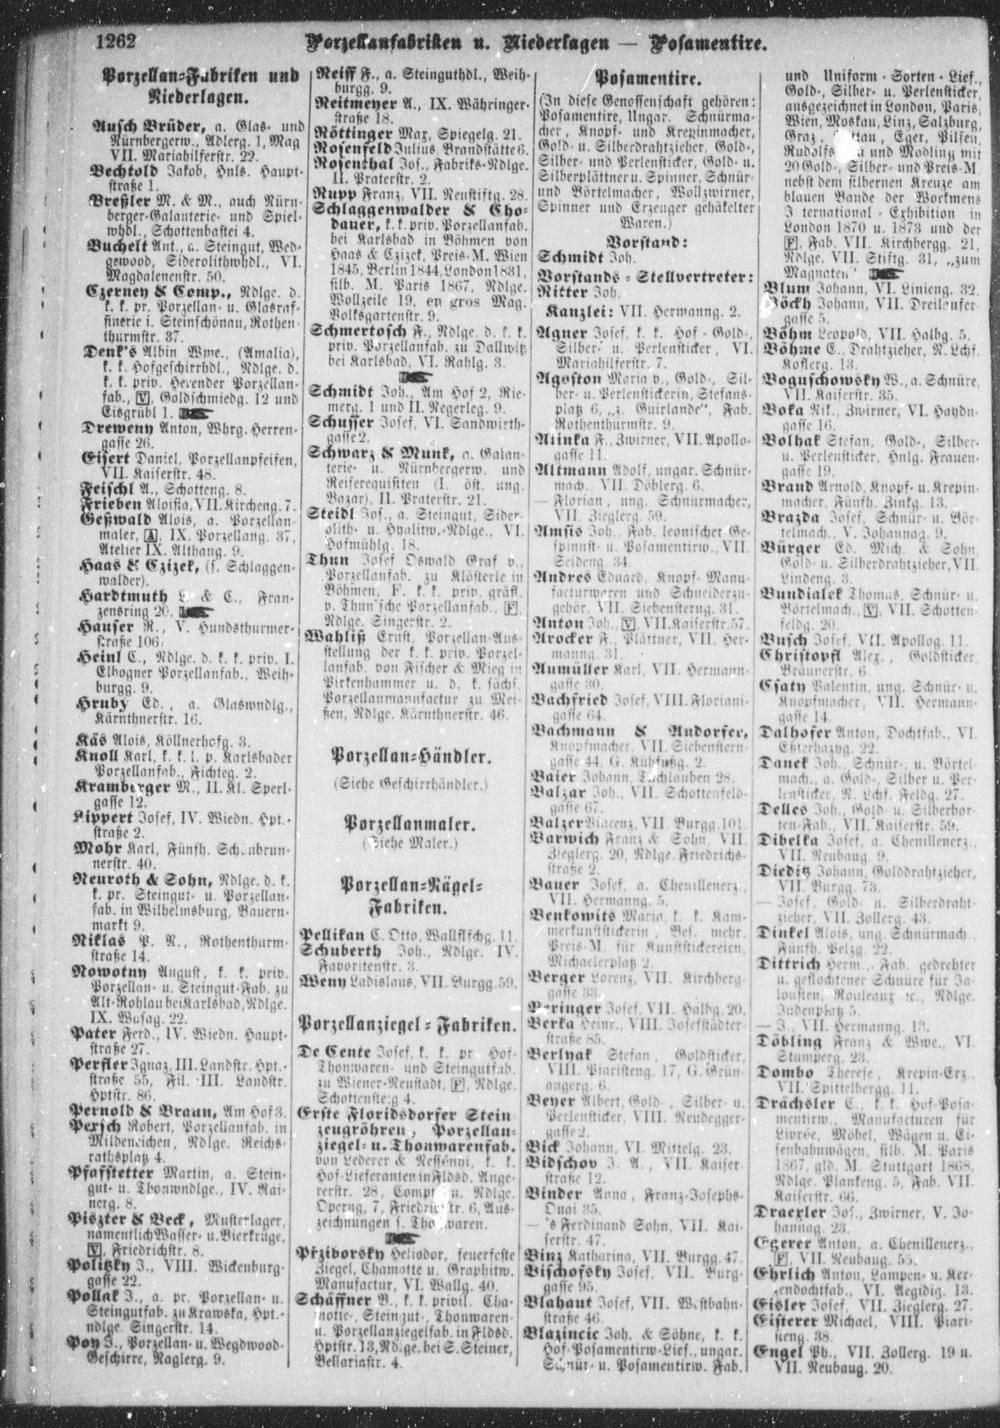 1262
Porzellanfabriken u. Niederlagen — Posamentire.
Porzellan-Fabriken und
Niederlagen.
Ausch Brüder, a. Glas- und
Nürnbergerw., Adlerg. 1, Mag
VII. Mariahilferstr. 22.
Bechtold Jakob, Hnls. Haupt-
straße 1.
Breßler M. & M., auch Nürn-
berger-Galanterie- und Spiel-
whdl., Schottenbastei 4.
Buchelt Ant., a. Steingut, Wed-
gewood, Siderolithwhdl., VI.
Magdalenenstr. 50.
Czerney & Comp., Ndlge. d.
k. k. pr. Porzellan- u. Glasraf-
finerie i. Steinschönau, Rothen-
thurmstr. 37.
Denk's Albin Wwe., (Amalia),
k. k. Hofgeschirrhdl., Ndlge. d.
k. k. priv. Herender Porzellan-
fab., V, Goldschmiedg. 12 und
Eisgrübl 1.
Dreweny Anton, Whrg. Herren-
gasse 26.
Eisert Daniel, Porzellanpfeifen,
VII. Kaiserstr. 48.
Feischl A., Schotteng. 8.
Frieben Aloisia, VII. Kircheng. 7.
Geßwald Alois, a. Porzellan-
maler, A, IX. Porzellang. 37,
Atelier IX. Althang. 9.
Haas & Czizek, (s. Schlaggen-
walder).
Hardtmuth L. & C., Fran-
zensring 20.
Hauser R., V. Hundsthurmer-
straße 106.
Heinl C., Ndlge. d. k. k. priv. I.
Elbogner Porzellanfab., Weih-
burgg. 9.
Hruby Ed., a. Glaswndlg.,
Kärnthnerstr. 16.
Käs Alois, Köllnerhofg. 3.
Knoll Karl, k. k. l. p. Karlsbader
Porzellanfab., Fichteg. 2.
Kramberger M., II. Kl. Sperl-
gasse 12.
Lippert Josef, IV. Wiedn. Hpt.-
straße 2.
Mohr Karl, Fünfh. Schönbrun-
nerstr. 40.
Neuroth & Sohn, Ndlge. d. k.
k. pr. Steingut- u. Porzellan-
fab. in Wilhelmsburg, Bauern-
markt 9.
Niklas P. N., Rothenthurm-
straße 14.
Nowotny August, k. k. priv.
Porzellan- u. Steingut-Fab. zu
Alt-Rohlau bei Karlsbad, Ndlge.
IX. Wasag. 22.
Pater Ferd., IV. Wiedn. Haupt-
straße 27.
Perfler Ignaz, III. Landstr. Hpt.-
straße 55, Fil. III. Landstr.
Hptstr. 86.
Pernold & Braun, Am Hof 3.
Persch Robert, Porzellanfab. in
Mildeneichen, Ndlge. Reichs-
rathsplatz 4.
Pfaffstetter Martin, a. Stein-
gut- u. Thonwndlge., IV. Rai-
nerg. 8.
Piszter & Beck, Musterlager,
namentlich Wasser- u. Bierkrüge,
V, Friedrichstr. 8.
Politzky J., VIII. Wickenburg-
gasse 22.
Pollak J., a. pr. Porzellan- u.
Steingutfab. zu Krawska, Hpt.-
ndlge. Singerstr. 14.
Poy J., Porzellan- u. Wegdwood-
Geschirre, Naglerg. 9.
Reiff F., a. Steinguthdl., Weih-
burgg. 9.
Reitmeyer A., IX. Währinger-
straße 18.
Röttinger Max, Spiegelg. 21.
Rosenfeld Julius, Brandstätte 6.
Rosenthal Jos., Fabriks-Ndlge.
II. Praterstr. 2.
Rupp Franz, VII. Neustiftg. 28.
Schlaggenwalder & Cho-
dauer, k. k. priv. Porzellanfab.
bei Karlsbad in Böhmen von
Haas & Czizek, Preis-M. Wien
1845, Berlin 1844, London 1831,
silb. M. Paris 1867, Ndlge.
Wollzeile 19, en gros Mag.
Volksgartenstr. 9.
Schmertosch F., Ndlge. d. k. k.
priv. Porzellanfab. zu Dallwitz
bei Karlsbad, VI. Rahlg. 3.
Schmidt Joh., Am Hof 2, Rie-
merg. 1 und II. Negerleg. 9.
Schusser Josef, VI. Sandwirth-
gasse 2.
Schwarz & Munk, a. Galan-
terie- u. Nürnbergerw. und
Reiserequisiten (I. öst. ung.
Bazar), II. Praterstr. 21.
Steidl Jos., a. Steingut, Sider-
olith- u. Hyalitw.-Ndlge., VI.
Hofmühlg. 18.
Thun Josef Oswald Graf v.,
Porzellanfab. zu Klösterle in
Böhmen, F. k. k. priv. gräfl.
v. Thun'sche Porzellanfab., F,
Ndlge. Singerstr. 2.
Wahliß Ernst, Porzellan-Aus-
stellung der k. k. priv. Porzel-
lanfab. von Fischer & Mieg in
Pirkenhammer u. d. k. sächs.
Porzellanmanufactur zu Mei-
ßen, Ndlge. Kärnthnerstr. 46.
Porzellan-Händler.
(Siehe Geschirrhändler.)
Porzellanmaler.
(Siehe Maler.)
Porzellan-Nägel-
Fabriken.
Pellikan C. Otto, Wallfischg. 11.
Schuberth Joh., Ndlge. IV.
Favoritenstr. 3.
Weny Ladislaus, VII. Burgg. 59.
Porzellanziegel-Fabriken.
De Cente Josef, k. k. pr. Hof-
Thonwaren- und Steingutfab.
zu Wiener-Neustadt, F, Ndlge.
Schottensteig 4.
Erste Floridsdorfer Stein
zeugröhren, Porzellan-
ziegel- u. Thonwarenfab.
von Lederer & Nessényi, k. k.
Hof-Lieferanten in Fldsd. Ange-
rerstr. 28, Compt. u. Ndlge.
Operng. 7, Friedrichstr. 6, Aus-
zeichnungen s. Thonwaren.
Přzidorsky Heliodor, feuerfeste
Ziegel, Chamotte u. Graphitw.
Manufactur, VI. Wallg. 40.
Schäffner B., k. k. privil. Cha-
motte-, Steingut-, Thonwaren-
u. Porzellanziegelfab. in Fldsd.
Hptstr. 13, Ndlge. bei S. Steiner,
Bellariastr. 4.
Posamentire.
(In diese Genossenschaft gehören:
Posamentire, Ungar. Schnürma-
cher, Knopf- und Krepinmacher,
Gold- u. Silberdrahtzieher, Gold-,
Silber- und Perlensticker, Gold- u.
Silberplättner u. Spinner, Schnür-
und Börtelmacher, Wollzwirner,
Spinner und Erzeuger gehäkelter
Waren.)
Vorstand:
Schmidt Joh.
Vorstands-Stellvertreter:
Ritter Joh.
Kanzlei: VII. Hermanng. 2.
Agner Josef, k. k. Hof-Gold-,
Silber- u. Perlensticker, VI.
Mariahilferstr. 7.
Agoston Maria v., Gold-, Sil-
ber- u. Perlenstickerin, Stefans-
platz 6, „z. Guirlande", Fab.
Rothenthurmstr. 9.
Alinka F., Zwirner, VII. Apollo-
gasse 11.
Altmann Adolf, ungar. Schnür-
mach., VII. Döblerg. 6.
— Florian, ung. Schnürmacher,
VII. Zieglerg. 59.
Amsis Joh., Fab. leonischer Ge-
spinnst- u. Posamentirw., VII.
Seideng. 34.
Andres Eduard, Knopf-Manu-
facturwaren und Schneiderzu-
gehör, VII. Siebensterng. 31.
Anton Joh., V, VII. Kaiserstr. 57.
Arocker F., Plättner, VII. Her-
manng. 31.
Aumüller Karl, VII. Hermann-
gasse 30.
Bachfried Josef, VIII. Floriani-
gasse 64.
Bachmann & Andorfer,
Knopfmacher, VII. Siebenstern-
gasse 44, G. Kühfußg. 2.
Baier Johann, Tuchlauben 28.
Balzar Joh., VII. Schottenfeld-
gasse 67.
Balzer Vincenz, VII. Burgg. 101.
Barwich Franz & Sohn, VII.
Zieglerg. 20, Ndlge. Friedrichs-
straße 2.
Bauer Josef, a. Chenillenerz.,
VII. Hermanng. 5.
Benkowits Maria, k. k. Kam-
merkunststickerin, Bes. mehr.
Preis-M. für Kunststickereien,
Michaelerplatz 2.
Berger Lorenz, VII. Kirchberg-
gasse 33.
Beringer Josef, VII. Halbg. 20.
Berka Heinr., VIII. Josefstädter-
straße 85.
Berlyak Stefan, Goldsticker,
VIII. Piaristeng. 17, G. Grün-
angerg. 6.
Beyer Albert, Gold-, Silber- u.
Perlensticker, VIII. Neudegger-
gasse 2.
Bick Johann, VI. Mittelg. 23.
Bidschov J. A., VII. Kaiser
straße 12.
Binder Anna, Franz-Josephs-
Quai 35.
— 's Ferdinand Sohn, VII. Kai-
serstr. 47.
Binz Katharina, VII. Burgg. 47.
Bischofsky Josef, VII. Burg-
gasse 95.
Blahaut Josef, VII. Westbahn-
straße 46.
Blazincic Joh. & Söhne, k. k.
Hof-Posamentirw.-Lief., ungar.
Schnür- u. Posamentirw. Fab.
und Uniform-Sorten-Lief.,
Gold-, Silber- u. Perlensticker,
ausgezeichnet in London, Paris,
Wien, Moskau, Linz, Salzburg,
Graz, Eger, Pilsen,
Rudolfs und Mödling mit
20 Gold-, Silber- und Preis-M.
nebst dem silbernen Kreuze am
blauen Bande der Workmens
International-Exhibition in
London 1870 u. 1873 und der
F, Fab. VII. Kirchbergg. 21,
Ndlge. VII. Stiftg. 31, „zum
Magnaten"
Blum Johann, VI. Linieng. 32.
Böckh Johann, VII. Dreilaufer-
gasse 5.
Böhm Leopold, VII. Halbg. 5.
Böhme C., Drahtzieher, N. Lchf.
Koflerg. 13.
Boguschowsky W., a. Schnüre,
VII. Kaiserstr. 35.
Boka Nik., Zwirner, VI. Haydn-
gasse 16.
Bolhak Stefan, Gold-, Silber-
u. Perlensticker, Hnlg. Frauen-
gasse 19.
Brand Arnold, Knopf- u. Krepin-
macher, Fünfh. Zinkg. 13.
Brazda Josef, Schnür- u. Bör-
telmach., V. Johannag. 9.
Bürger Ed. Mich. & Sohn,
Gold- u. Silberdrahtzieher, VII.
Lindeng. 3.
Bundialek Thomas, Schnür- u.
Börtelmach., V, VII. Schotten-
feldg. 20.
Busch Josef, VII. Apollog. 11.
Christopfl Alex., Goldsticker,
Bräunerstr. 6.
Csaty Valentin, ung. Schnür- u.
Knopfmacher, VII. Hermann-
gasse 14.
Dalhofer Anton, Dochtfab., VI.
Eßterhazyg. 22.
Danek Joh., Schnür- u. Börtel-
mach., a. Gold-, Silber u. Per-
lensticker, N. Lchf. Feldg. 27.
Delles Joh., Gold- u. Silberbor-
ten-Fab., VII. Kaiserstr. 59.
Dibelka Johann, a. Chenillenerz.,
VII. Neubaug. 9.
Dieditz Johann, Golddrahtzieher,
VII. Burgg. 73.
— Josef, Gold- u. Silberdraht-
zieher, VII. Zollerg. 43.
Dinkel Alois, ung. Schnürmach.,
Fünfh. Pelzg. 22.
Dittrich Herm., Fab. gedrehter
u. geflochtener Schnüre für Ja-
lousien, Rouleaux ꝛc., Ndlge.
Judenplatz 5.
— J., VII. Hermanng. 13.
Döbling Franz & Wwe., VI.
Stumperg. 23.
Dombo Therese, Krepin-Erz.,
VII. Spittelbergg. 11.
Drächsler C., k. k. Hof-Posa-
mentirw., Manufacturen für
Livrée, Möbel, Wägen u. Ei-
senbahnwägen, silb. M. Paris
1867, gld. M. Stuttgart 1868,
Ndlge. Plankeng. 5, Fab. VII.
Kaiserstr. 66.
Draexler Jos., Zwirner, V. Jo-
hannag. 23.
Egerer Anton, a. Chenillenerz.,
F, VII. Neubaug. 55.
Ehrlich Anton, Lampen- u. Ker-
zendochtfab., VI. Aegidig. 13.
Eisler Josef, VII. Zieglerg. 27.
Eisterer Michael, VIII. Piari-
steng. 38.
Engel Ph., VII. Zollerg. 19 u.
VII. Neubaug. 20.